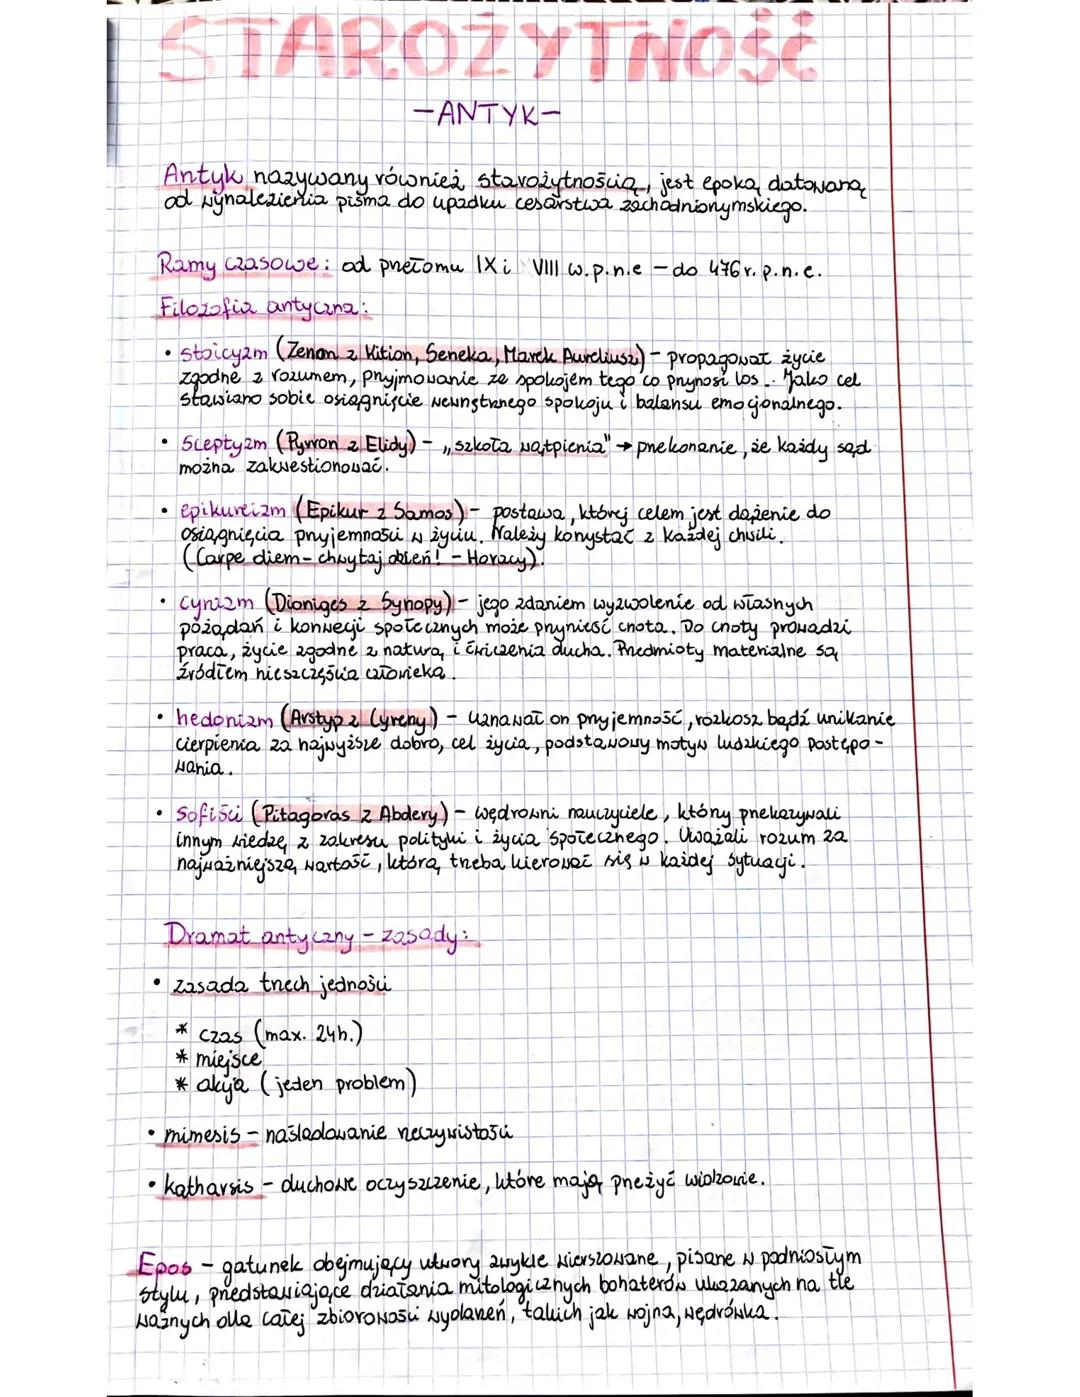 STAROŻYTNOŚĆ
-ANTYK-
Antyk nazywany również starożytnością, jest epoką datowaną
od wynalezienia pisma do upadku cesarstwa zachodniorzymskiego.
Ramy czasowe: od przełomu IX i VIII w.p.n.e - do 476 r. p.n.e.
Filozofia antyczna:
• stoicyzm (Zenon z Kition, Seneka, Marek Aureliusz) - propagował życie
zgodne z rozumem, przyjmowanie ze spokojem tego co przynosi los.. Jako cel
stawiano sobie osiągnięcie wewnętrznego spokoju i balansu emocjonalnego.
• Sceptyzm (Pyrron z Elidy) - „szkoła wątpienia" → przekonanie, że każdy sąd
można zakwestionować.
• epikureizm (Epikur z Samos) - postawa, której celem jest dążenie do
osiągnięcia przyjemności w życiu. Należy korzystać z każdej chwili.
(Carpe diem - chwytaj dzień! - Horacy).
• cynizm (Dioniges z Synopy) - jego zdaniem wyzwolenie od własnych
pożądań i konwecji społecznych może przynieść cnota. Do cnoty prowadzi
praca, życie zgodne z naturą i ćwiczenia ducha. Przedmioty materialne są
źródłem nieszczęścia człowieka.
• hedonizm (Arstyp z Cyreny) - uznawał on przyjemność, rozkosz bądź unikanie
cierpienia za najwyższe dobro, cel życia, podstawowy motyw ludzkiego postępo-
wania.
• Sofiści (Pitagoras z Abdery) - wędrowni nauczyciele, który przekazywali
innym wiedzę z zakresu polityki i życia społecznego. Uważali rozum za
najważniejszą wartość, którą trzeba kierować się w każdej sytuacji.
Dramat antyczny - zasady:
• zasada trzech jedności
* czas (max. 24h.)
* miejsce
* akcja (jeden problem)
• mimesis - naśladowanie rzeczywistości
• katharsis - duchowe oczyszczenie, które mają przeżyć widzowie.
Epos - gatunek obejmujący utwory zwykle wierszowane, pisane w podniosłym
stylu, przedstawiające działania mitologicznych bohaterów ukazanych na tle
ważnych dla całej zbiorowości wydarzeń, takich jak wojna, wędrówka.